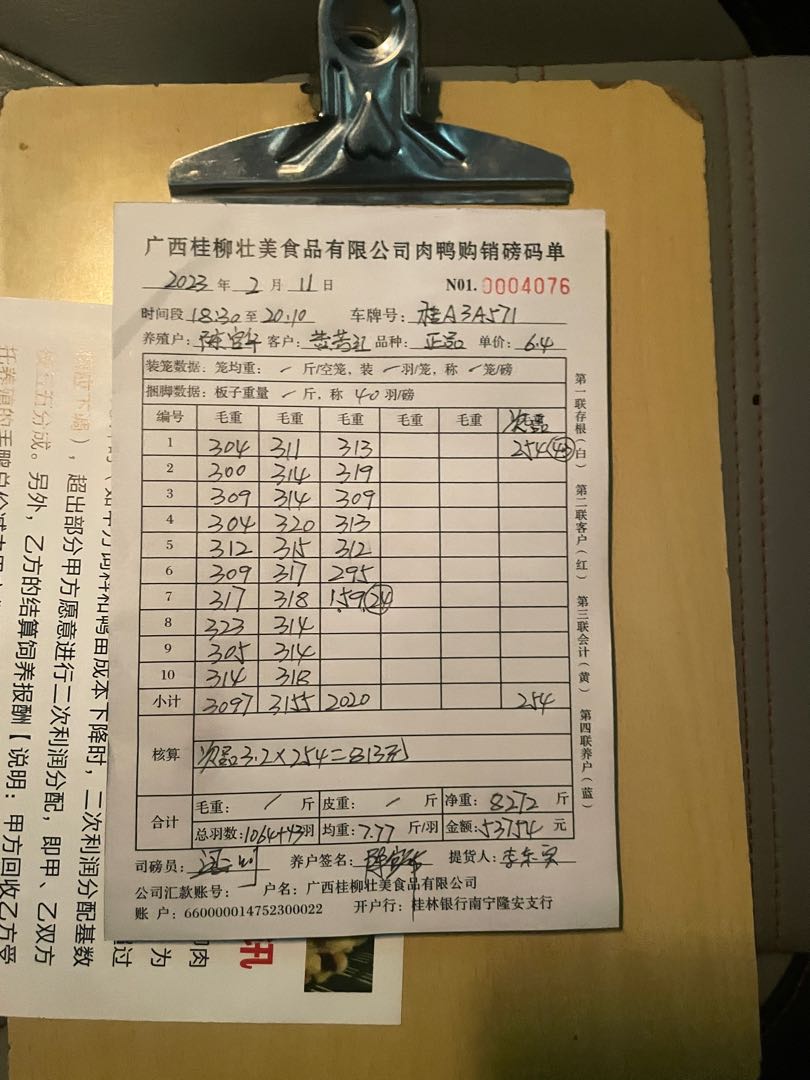 广西桂柳壮美食品有限公司肉鸭购销磅码单
2023 年 2 月 11 日 N01. 0004076
时间段 18:30 至 20:10 车牌号: 桂A3A571
养殖户: 客户: 品种: 正品 单价: 6.4
装笼数据: 笼均重: / 斤/空笼, 装 / 羽/笼, 称 / 笼/磅
捆脚数据: 板子重量 / 斤, 称 40 羽/磅
编号 毛重 毛重 毛重 毛重 毛重 次品
1 304 311 313 254 (43)
2 300 314 319
3 309 314 309
4 304 320 313
5 312 315 312
6 309 317 295
7 317 318 159 (24)
8 323 314
9 305 314
10 314 318
小计 3097 3155 2020 254
核算 次品3.2×254=813元
合计 毛重: / 斤 皮重: / 斤 净重: 8272 斤
总羽数: 1064+43羽 均重: 7.77 斤/羽 金额: 53754 元
司磅员: 养户签名: 提货人:
公司汇款账号: 户名: 广西桂柳壮美食品有限公司
账 户: 660000014752300022 开户行: 桂林银行南宁隆安支行
第一联存根(白) 第二联客户(红) 第三联会计(黄) 第四联养户(蓝)
成本下降时, 二次利润分配基数
), 超出部分甲方愿意进行二次利润分配, 即甲、乙双方
在分成。另外, 乙方的结算饲养报酬【说明: 甲方回收乙方受